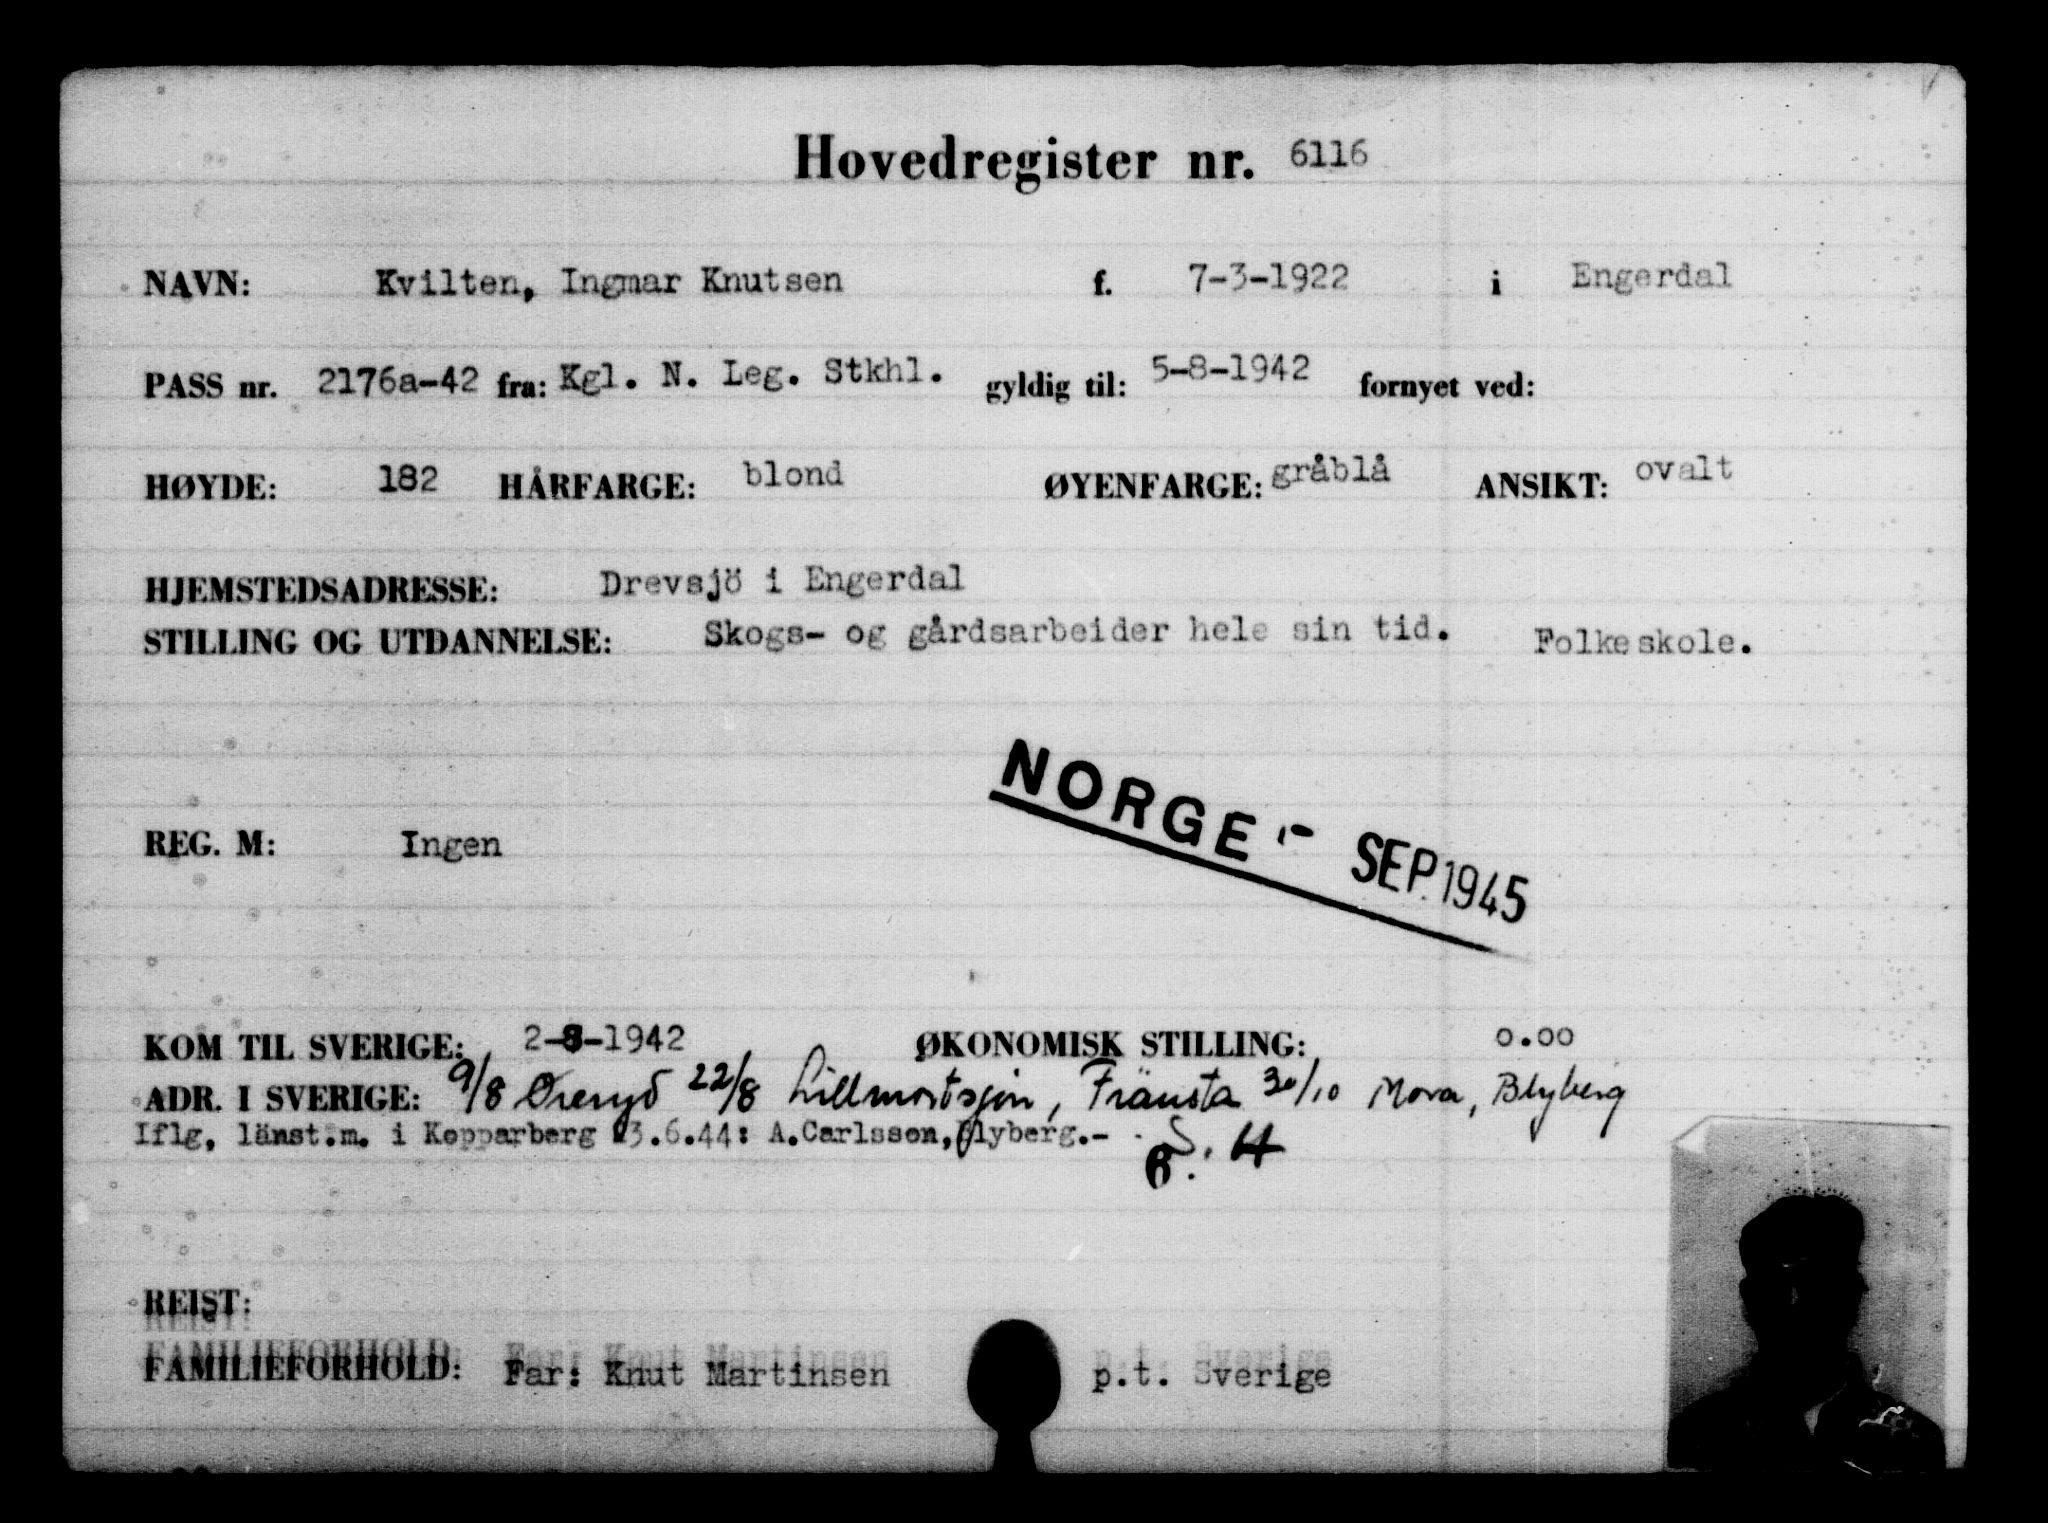 Hovedregister nr. 6116
NAVN: Kvilten, Ingmar Knutsen f. 7-3-1922 i Engerdal
PASS nr. 2176a-42 fra: Kgl. N. Leg. Stkhl. gyldig til: 5-8-1942 fornyet ved:
HØYDE: 182 HÅRFARGE: blond ØYENFARGE: gråblå ANSIKT: ovalt
HJEMSTEDSADRESSE: Drevsjö i Engerdal
STILLING OG UTDANNELSE: Skogs- og gårdsarbeider hele sin tid. Folkeskole.
NORGE - SEP. 1945
REG. M: Ingen
KOM TIL SVERIGE: 2-8-1942 ØKONOMISK STILLING: 0.00
ADR. I SVERIGE: 9/8 Öreryd 22/8 Lillmortsjön, Fränsta 30/10 Mora, Blyberg
Iflg, länst.m. i Kopparberg 3.6.44: A.Carlsson, Blyberg.-
REIST:
FAMILIEFORHOLD: Far: Knut Martinsen p.t. Sverige